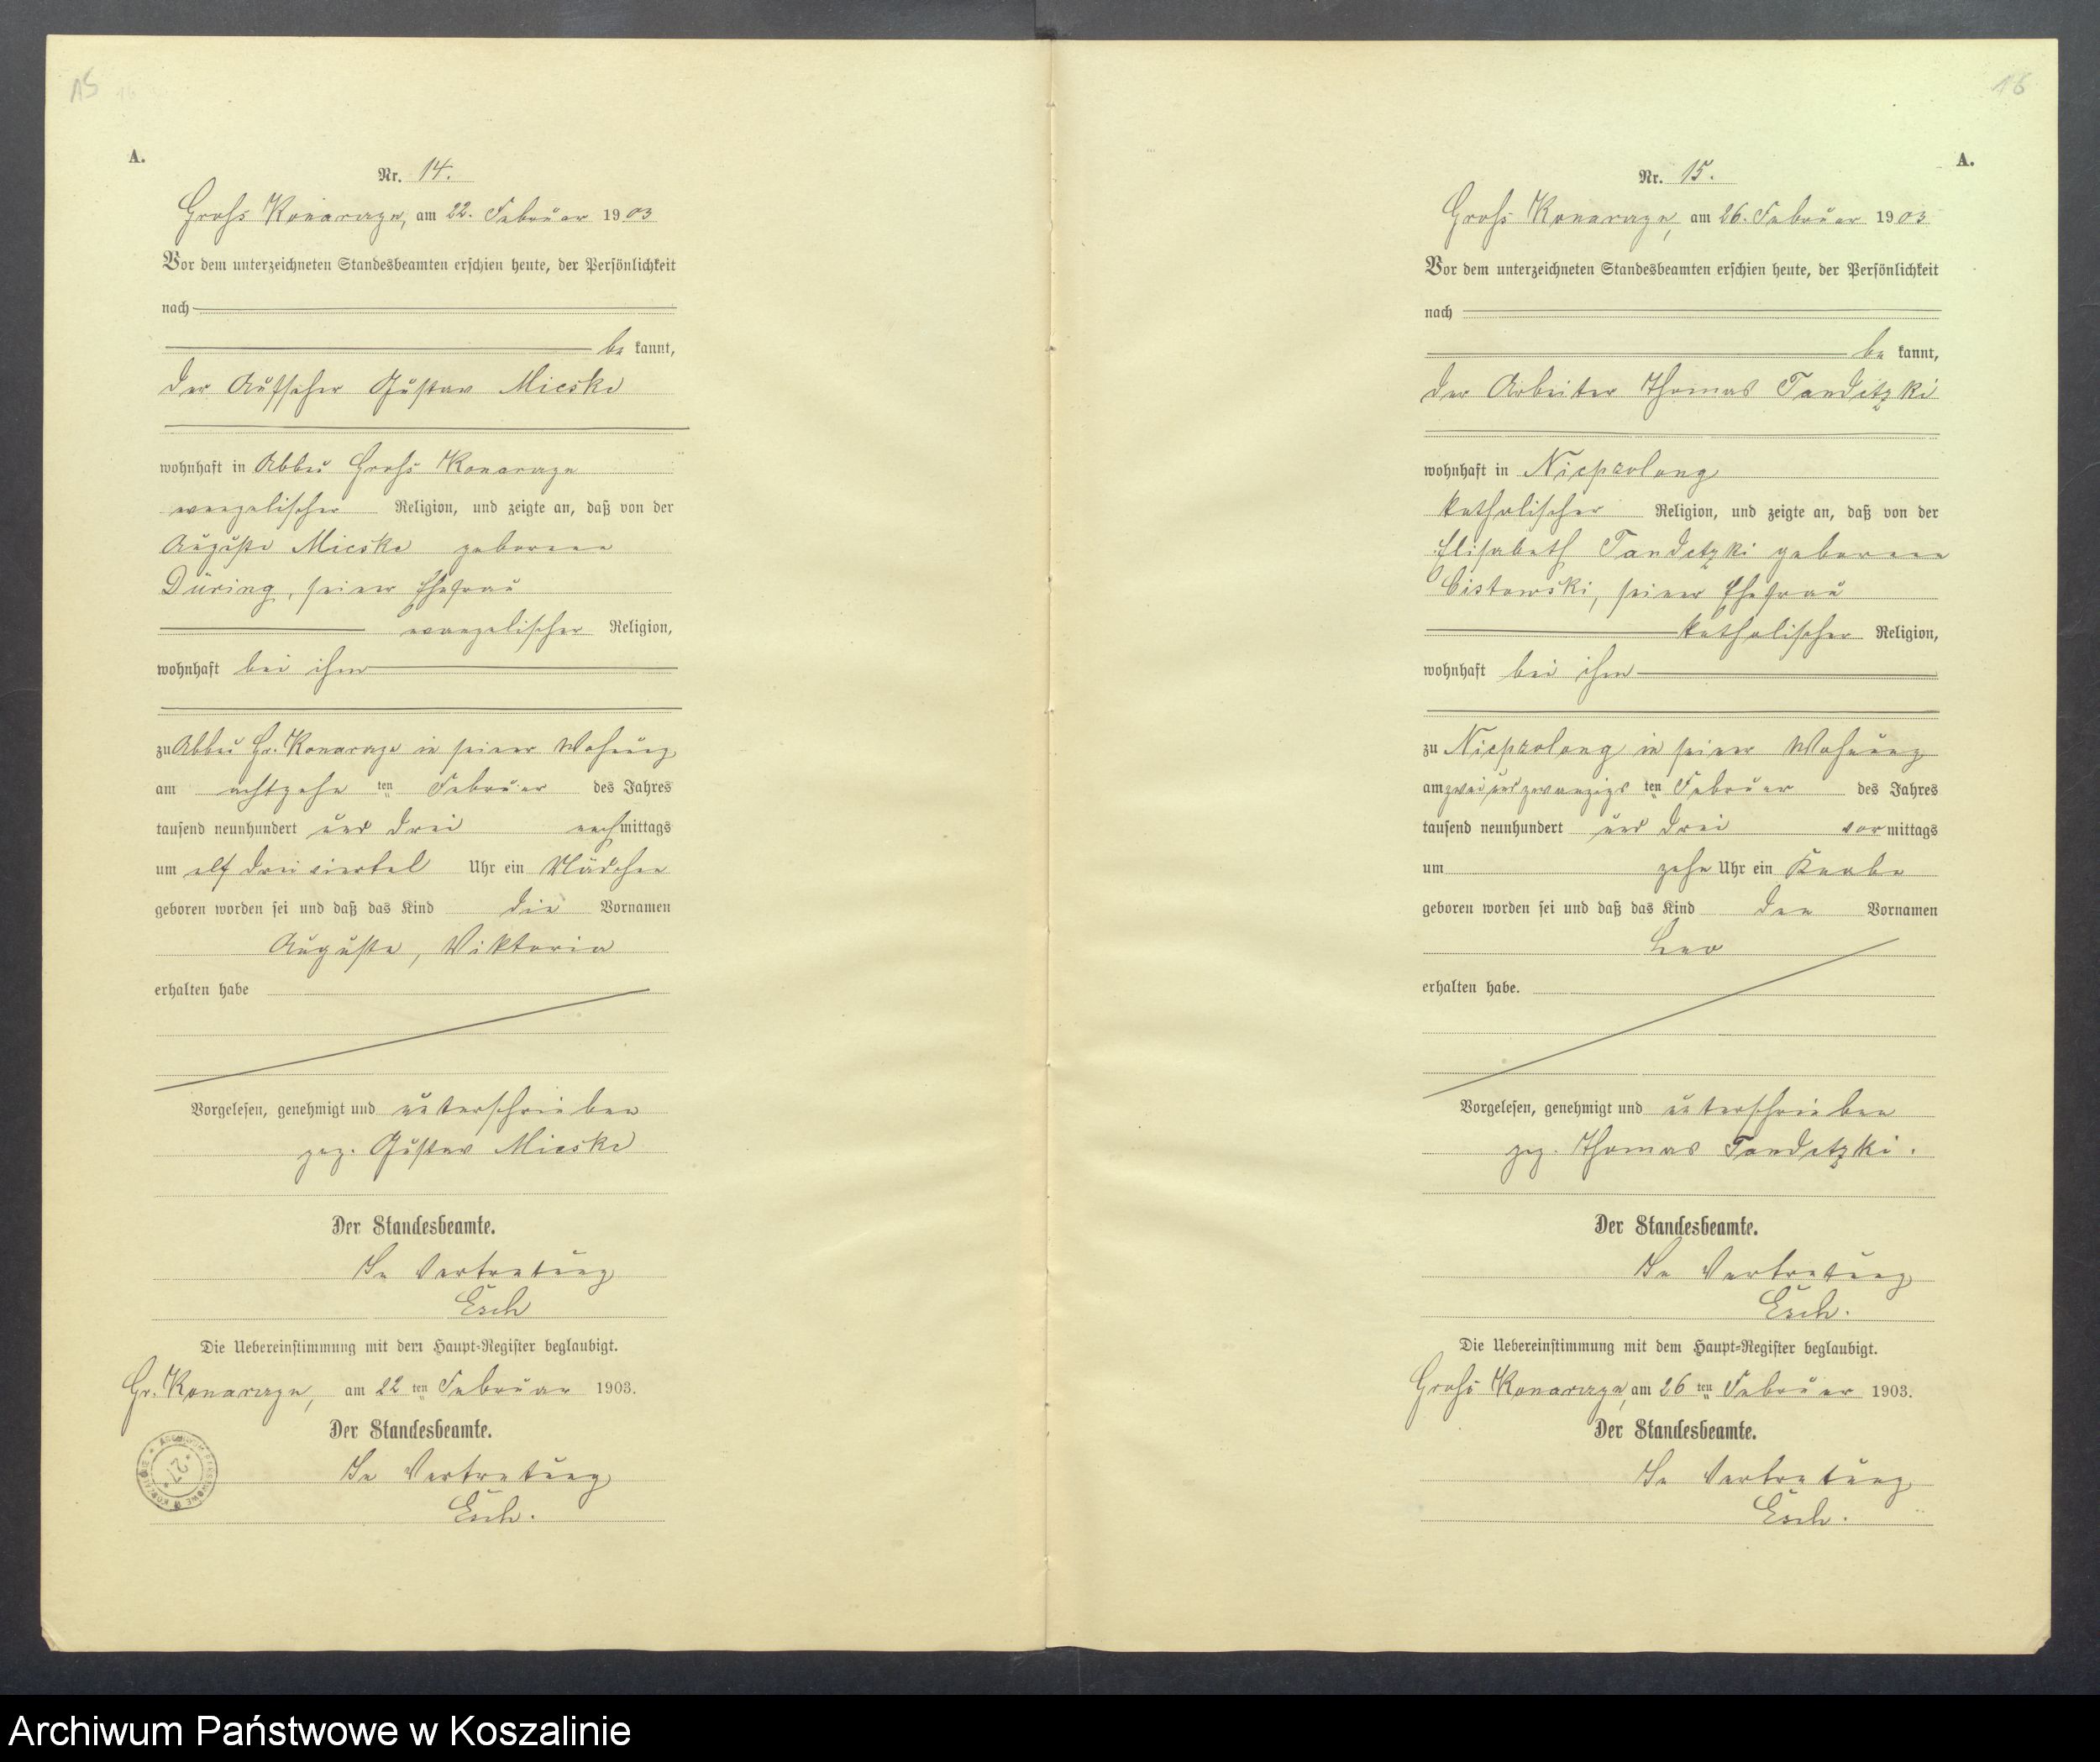 15
A.
Nr. 14.
Groß Konarczyn, am 22. Februar 1903
Vor dem unterzeichneten Standesbeamten erschien heute, der Persönlichkeit
nach
be kannt,
der Aufseher Gustav Mieske
wohnhaft in Abbau Groß Konarczyn
evangelischer Religion, und zeigte an, daß von der
Auguste Mieske geborenen
Düring, seiner Ehefrau
evangelischer Religion,
wohnhaft bei ihm
zu Abbau Gr. Konarczyn in seiner Wohnung
am achtzehn ten Februar des Jahres
tausend neunhundert und drei nachmittags
um elf dreiviertel Uhr ein Mädchen
geboren worden sei und daß das Kind die Vornamen
Auguste, Wiktoria
erhalten habe
Vorgelesen, genehmigt und unterschrieben
gez. Gustav Mieske
Der Standesbeamte.
In Vertretung
Esch
Die Uebereinstimmung mit dem Haupt-Register beglaubigt.
Gr. Konarczyn, am 22 ten Februar 1903.
Der Standesbeamte.
In Vertretung
Esch.
27
16
A.
Nr. 15.
Groß Konarczyn, am 26. Februar 1903
Vor dem unterzeichneten Standesbeamten erschien heute, der Persönlichkeit
nach
be kannt,
der Arbeiter Thomas Tandetzki
wohnhaft in Niepszolong
katholischer Religion, und zeigte an, daß von der
Elisabeth Tandetzki geborenen
Cistowski, seiner Ehefrau
katholischer Religion,
wohnhaft bei ihm
zu Niepszolong in seiner Wohnung
am zweiundzwanzigs ten Februar des Jahres
tausend neunhundert und drei vormittags
um zehn Uhr ein Knabe
geboren worden sei und daß das Kind den Vornamen
Leo
erhalten habe.
Vorgelesen, genehmigt und unterschrieben
gez. Thomas Tandetzki.
Der Standesbeamte.
In Vertretung
Esch.
Die Uebereinstimmung mit dem Haupt-Register beglaubigt.
Groß Konarczyn, am 26 ten Februar 1903.
Der Standesbeamte.
In Vertretung
Esch.
Archiwum Państwowe w Koszalinie